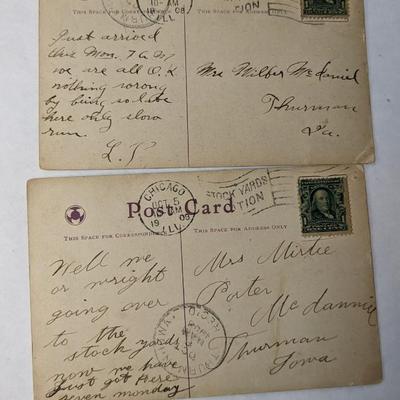 10-AM
19 08
ILL
ION
THIS SPACE FOR
FOR ADDRESS ONLY
Just arrived
this Mon. 7 a m
we are all O.K
nothing wrong
by being so late
here only slow
run.
L. P
Mrs Wilber McDaniel
Thurman
Ia.
CHICAGO
OCT 5
19 08
ILL.
STOCK YARDS
STATION
Post Card
THIS SPACE FOR CORRESPONDENCE
THIS SPACE FOR ADDRESS ONLY
Well we
or wright
going over
to the
stock yards
now we have
Just got here
seven monday
Mrs Mirtie
Porter
McDannil
Thurman
Iowa